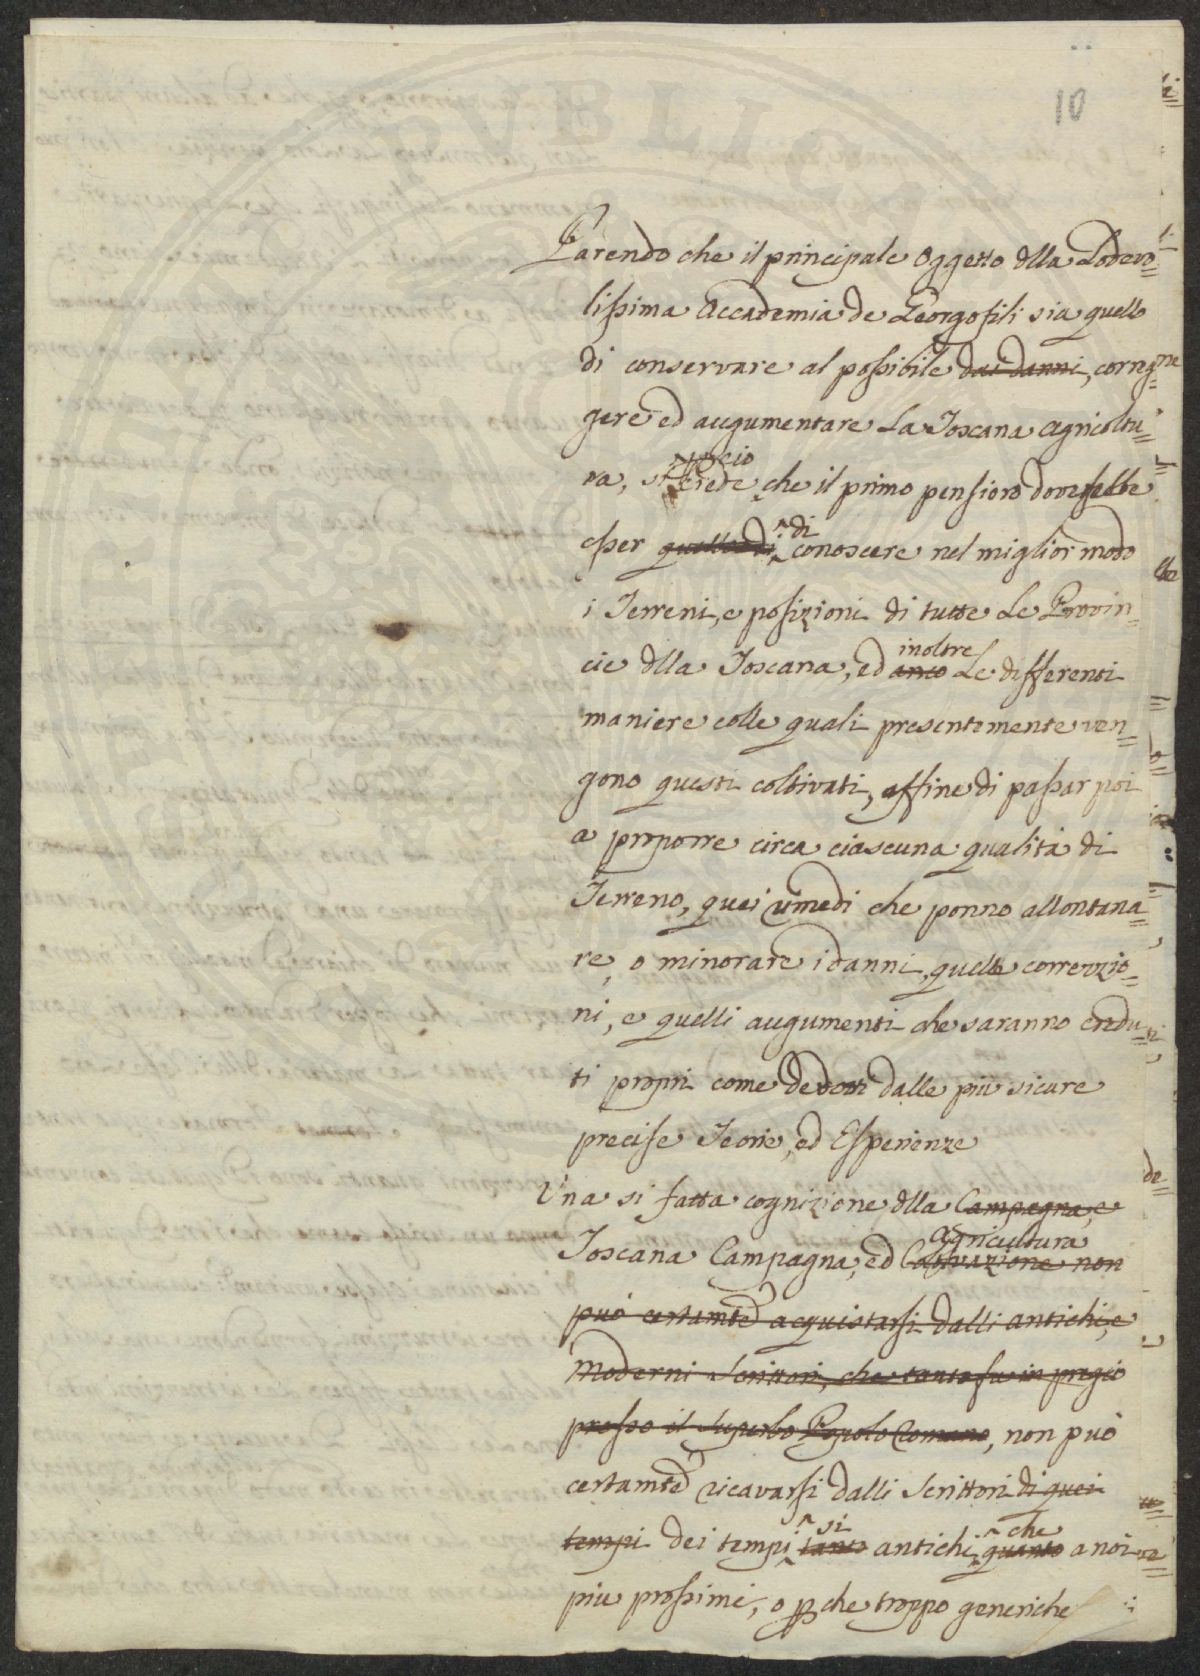 10
Parendo che il principale oggetto dlla Lodevo=
lissima Accademia de Georgofili sia quello
di conservare al possibile dai danni, correg=
gere ed augumentare La Toscana agricoltu=
ra, si crede che il primo pensiero dovrebbe
esser quello di di conoscere nel miglior modo
i Terreni, e posizioni di tutte Le Provin=
cie dlla Toscana, ed anco inoltre Le differenti
maniere colle quali presentemente ven=
gono questi coltivati, affine di passar poi
a proporre circa ciascuna qualità di
Terreno, quei rimedi che ponno allontana=
re, o minorare i danni, quelle correzzio=
ni, e quelli augumenti che saranno credu=
ti propri come dedotti dalle più sicure
precise Teorie, ed Esperienze
Una si fatta cognizione dlla Campagna, e
Toscana Campagna, ed Coltivazione non agricultura
può certamte acquistarsi dalli antichi, e
Moderni Scrittori, che tanto fu in pregio
presso il Superbo Popolo Romano, non può
certamte ricavarsi dalli Scrittori di quei
tempi dei tempi tanto si antichi, quanto che a noi
più prossimi, o p che troppo generiche